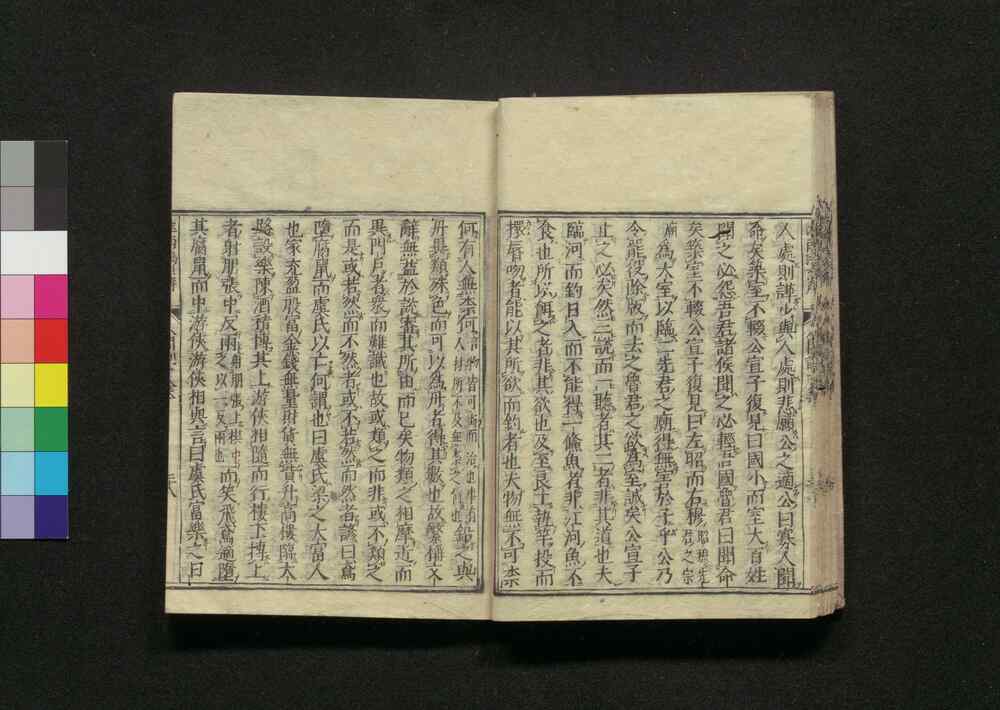 人處則譁少與人處則悲願公之適公曰寡人聞
命矣築室不輟公宣子復見曰國小而室大百姓
聞之必怨吾君諸侯聞之必輕吾國魯君曰聞命
矣築室不輟公宣子復見曰左昭而右穆
為大室以臨二先君之廟得無害於子乎公乃
令罷役除版而去之魯君之欲為室誠矣公宣子
止之必矣然三說而一聽者其二者非其道也夫
臨河而釣日入而不能得一鯈魚者非江河魚不
食也所以餌之者非其欲也及至良工執竿投而
擐脣吻者能以其所欲而釣者也夫物無不可柰
何有人無柰何
鈆之與丹異類殊色而可以為丹者得其數也故繁稱文
辭無益於說審其所由而已矣物類之相摩近而
異門戶者衆而難識也故或類之而非或不類之
而是或若然而不然者或不若然而然者諺曰鳶
墮腐鼠而虞氏以亡何謂也曰虞氏梁之大富人
也家充盈殷富金錢無量財貨無貲升高樓臨大
路設樂陳酒積博其上游俠相隨而行樓下博上
者射朋張中反兩而笑飛鳶適墮
其腐鼠而中游俠游俠相與言曰虞氏富樂之日